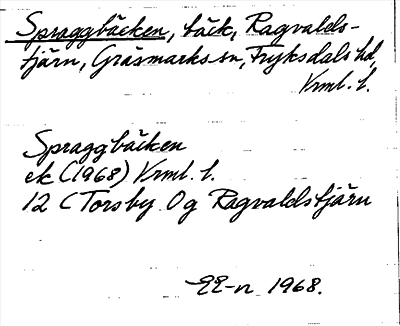 Spraggbäcken, bäck, Ragvalds-
tjärn, Gräsmarks sn, Fryksdals hd,
Vrml. l.
Spraggbäcken
ek (1968) Vrml. l.
12 C Torsby Og Ragvaldstjärn
1968.